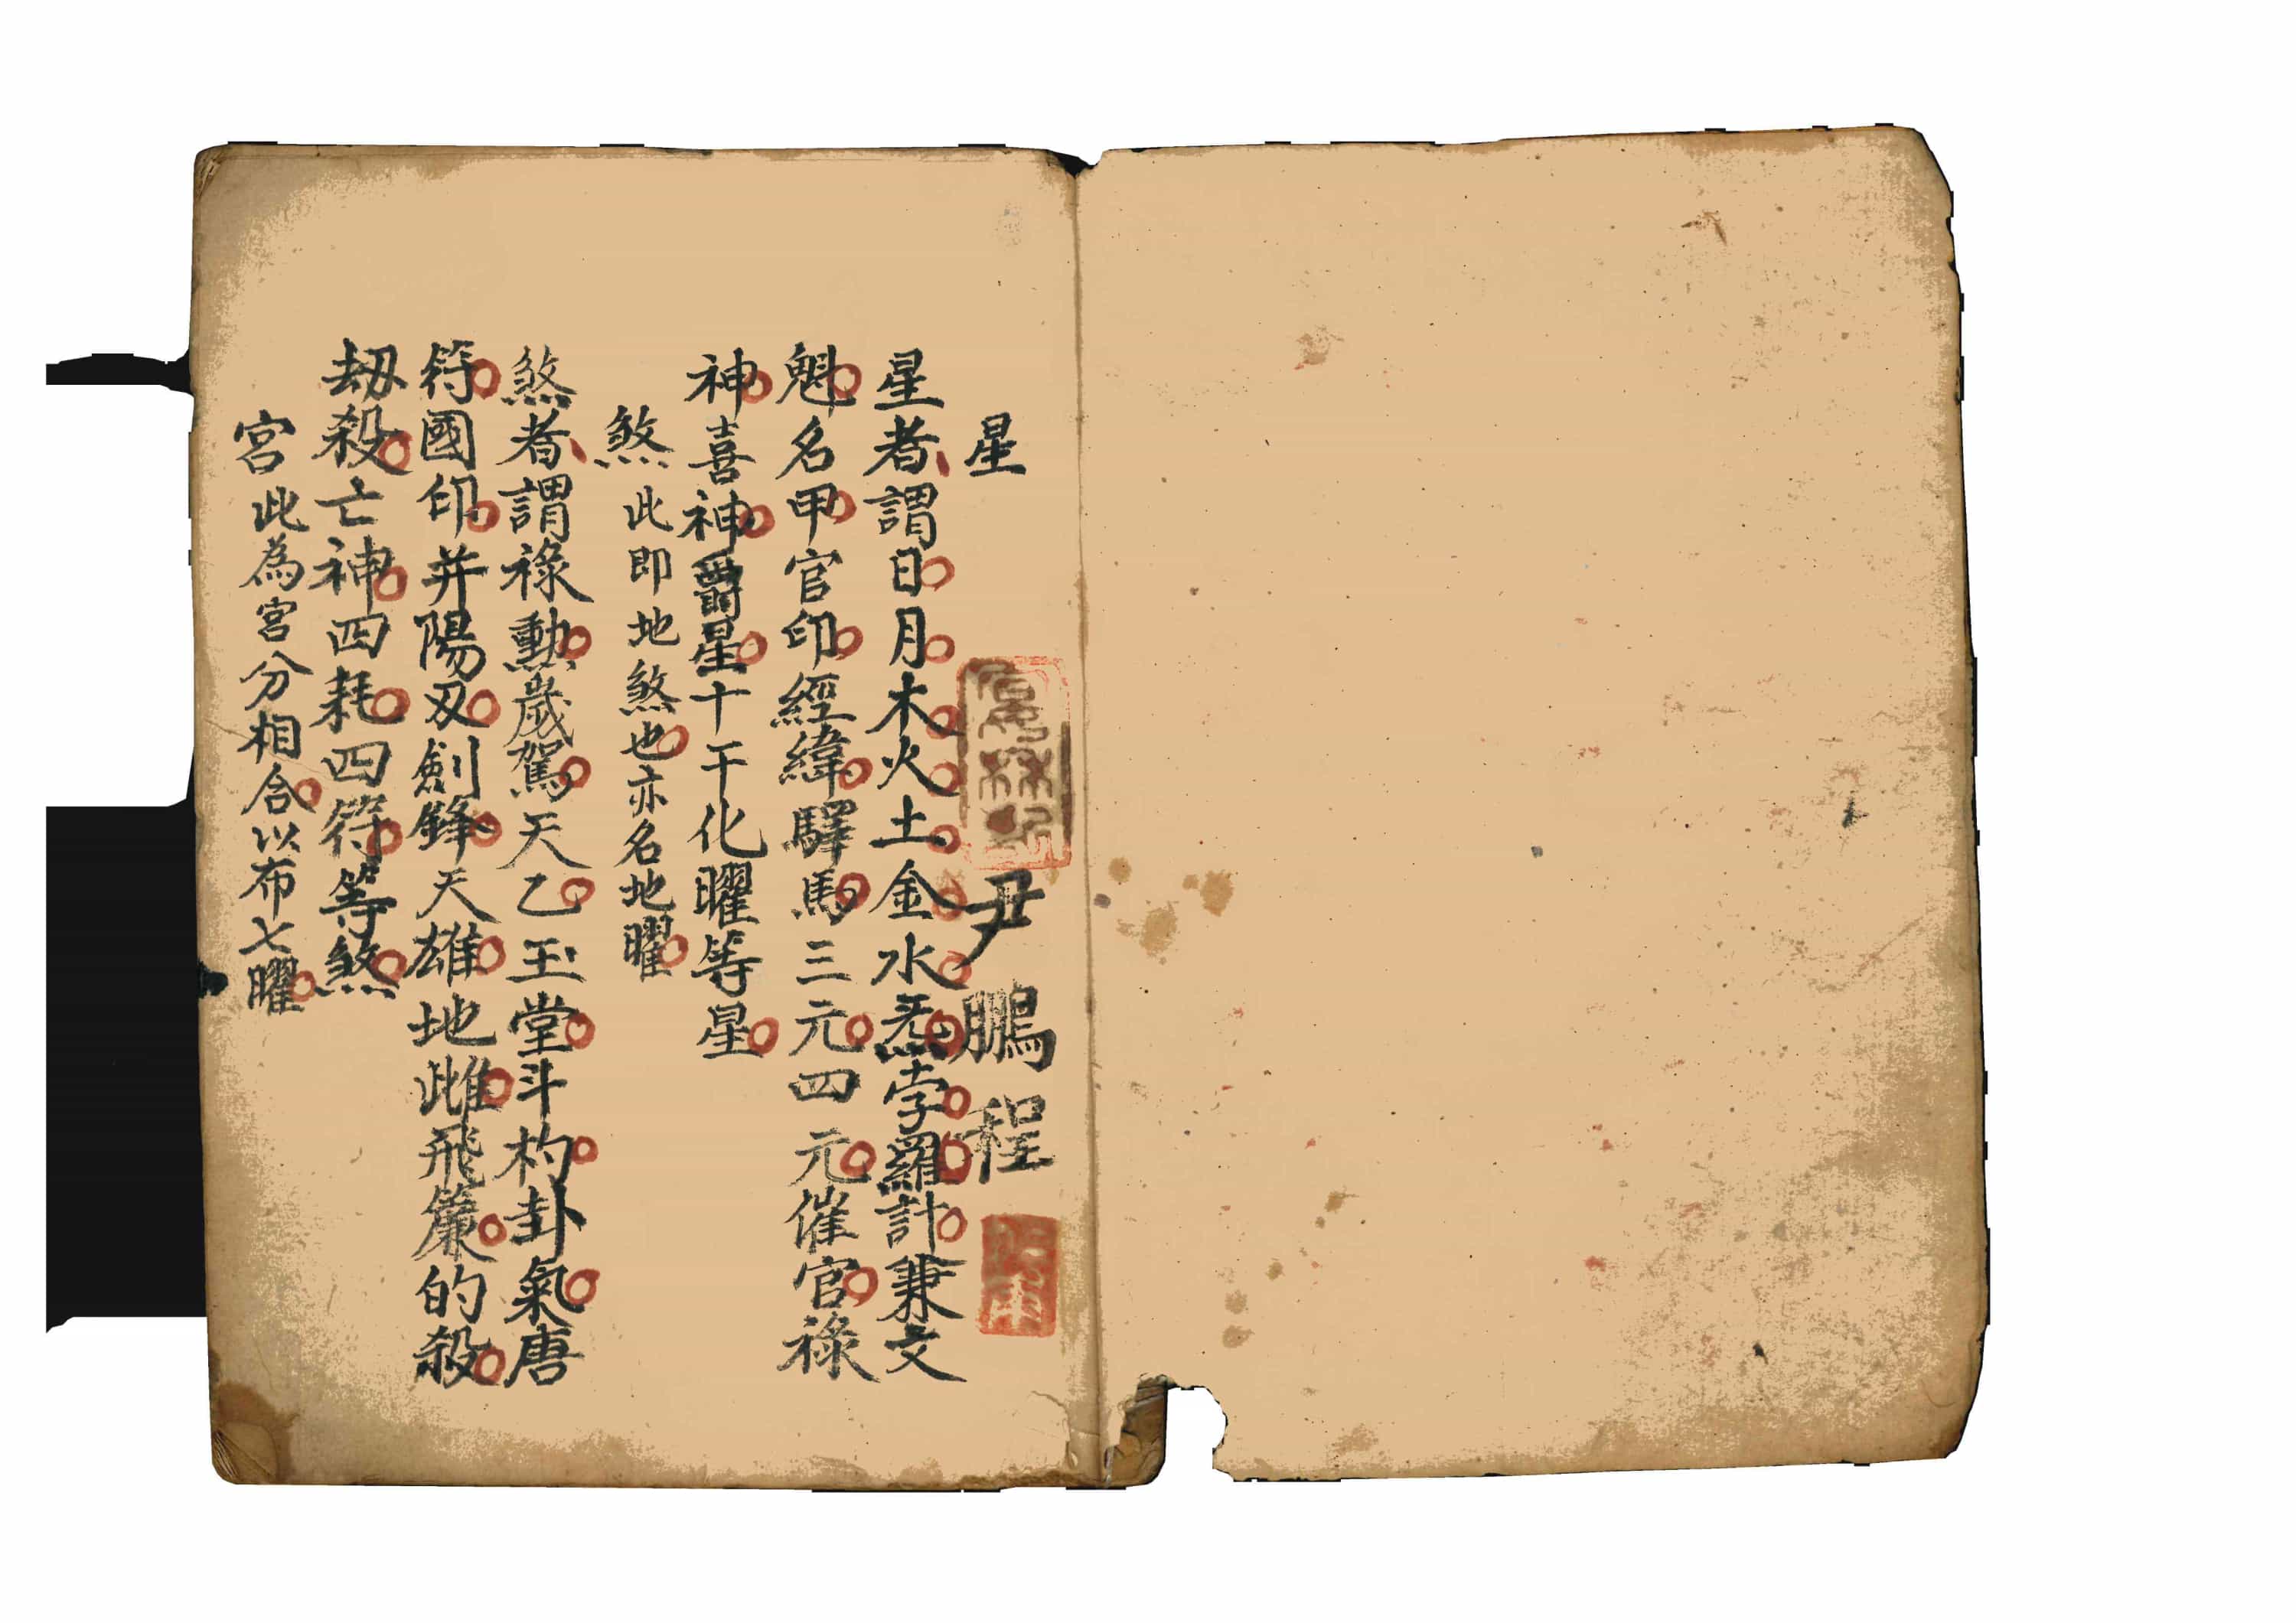 星 尹鵬程
星者謂日月木火土金水炁孛羅計兼文
魁名甲官印經緯驛馬三元四元催官祿
神喜神爵星十干化曜等星
煞此即地煞也亦名地曜
煞者謂祿勳歲駕天乙玉堂斗杓卦氣唐
符國印并陽刃劍鋒天雄地雌飛簾的殺
劫殺亡神四耗四符等煞
宮此為宮分相合以布七曜